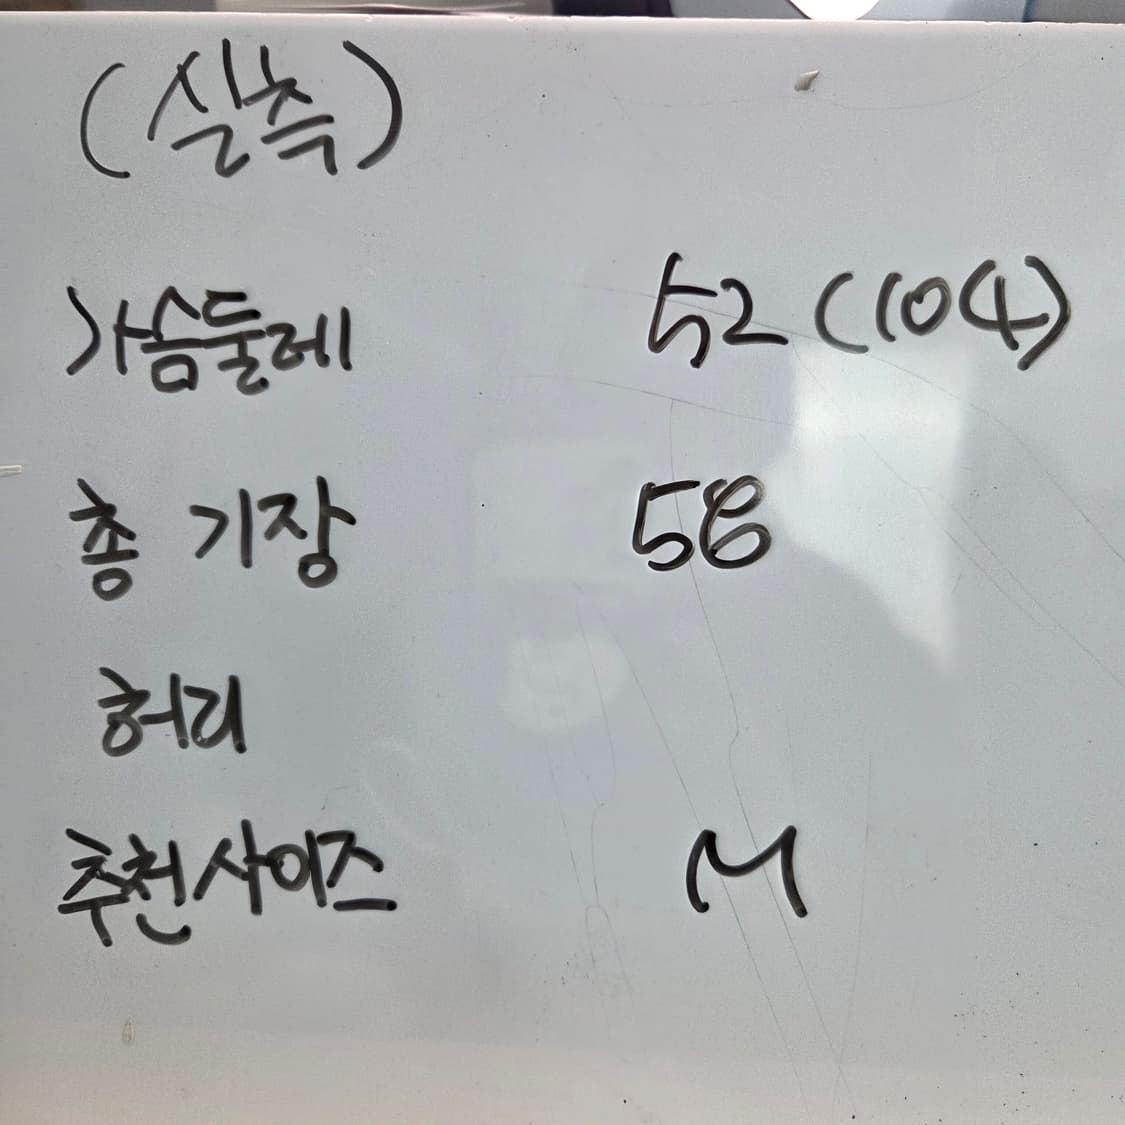 (실측)
가슴둘레 52 (104)
총 기장 58
허리
추천사이즈 M